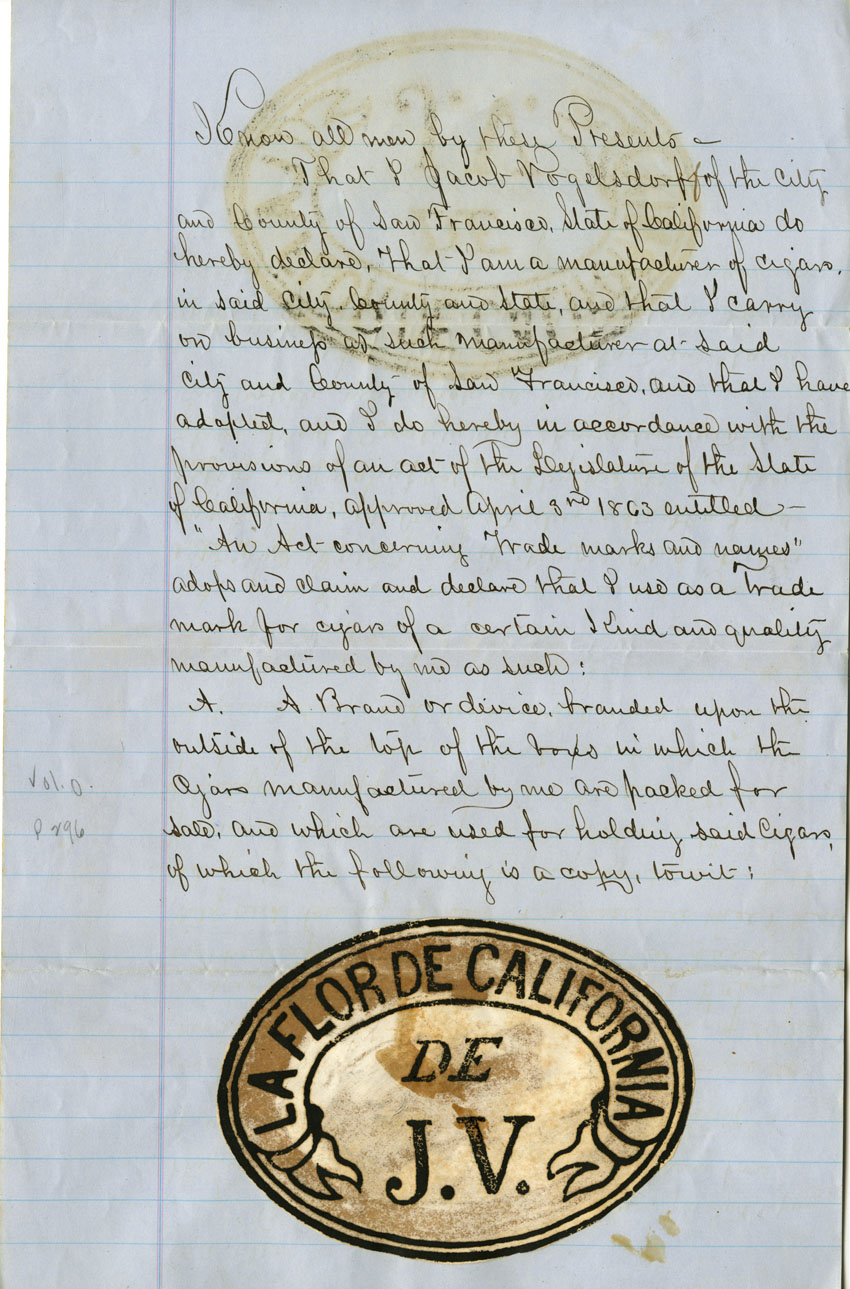 Know all men by these Presents —
That I Jacob Vogelsdorff of the City
and County of San Francisco, State of California do
hereby declare, that I am a manufacturer of cigars,
in said City, County and State, and that I carry
on business as such manufacturer at said
City and County of San Francisco, and that I have
adopted, and I do hereby in accordance with the
provisions of an act of the Legislature of the State
of California, approved April 3rd 1863 entitled —
"An Act concerning Trade marks and names"
adopt and claim and declare that I use as a Trade
mark for cigars of a certain Kind and quality
manufactured by me as such:
A. A Brand or device, branded upon the
outside of the top of the boxes in which the
Cigars manufactured by me are packed for
sale, and which are used for holding said Cigars,
of which the following is a copy, towit:
Vol. D.
P 296
LA FLOR DE CALIFORNIA
DE
J.V.